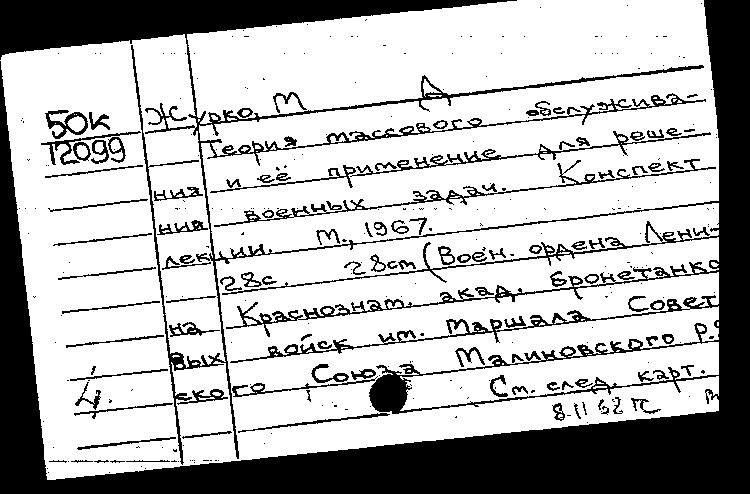 50к
Т2099
Журко, М А
Теория массового обслужива-
ния и её применение для реше-
ния военных задач. Конспект
лекции. М., 1967.
28с. 28cm (Воен. ордена Лени-
на Краснознам. акад. бронетанко
вых войск им. Маршала Совет
ского Союза Малиновского Р.Я
См. след. карт.
4.
8.II 68